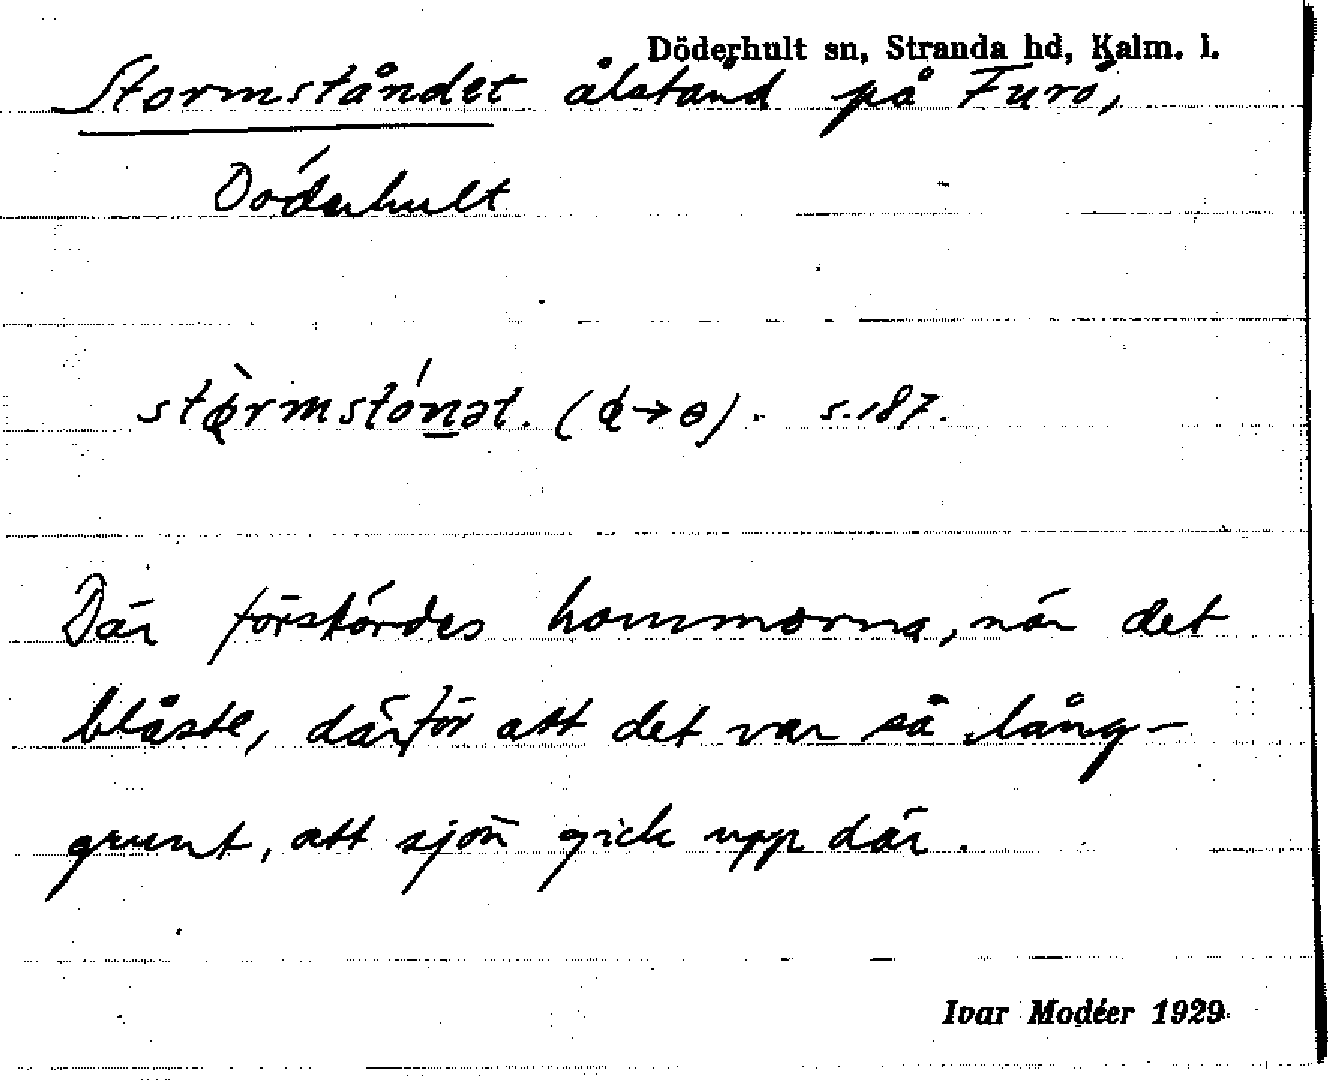 Döderhult sn, Stranda hd, Kalm. l.
Stormståndet ålstånd på Furö,
Döderhult
stɵ̀rmstónət. (ɸ→ɵ). s.187.
Där förstördes hommorna, när det
blåste, därför att det var så lång-
grunt, att sjön gick upp där.
Ivar Modéer 1929